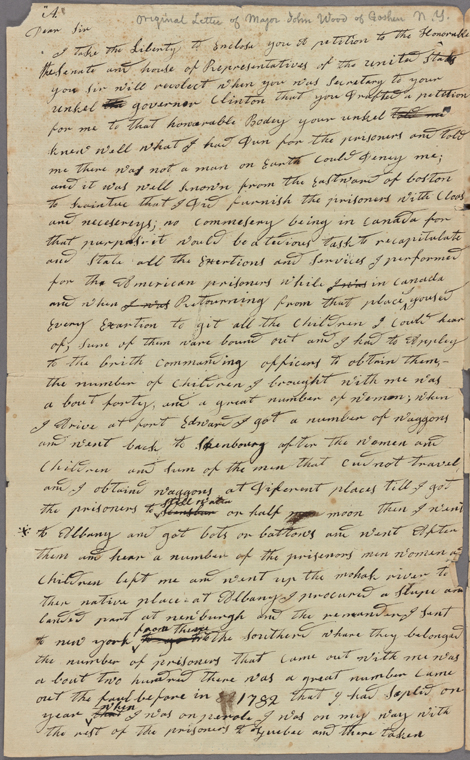 "4"
Original Letter of Major John Wood of Goshen N.Y.
Dear Sir
I take the Liberty to Enclose you A petition to the Honorable
the Senate and house of Representatives of the United States
you Sir will recolect when you was Secretary to your
unkel governor Clinton that you Drafted a petition
for me to that honorable Bodey your unkel
knew well what I had Dun for the prisoners and told
me there was not a man on Earth Could Deney me;
and it was well known from the Eastward of boston
to that I Did furnish the prisoners with Cloos
and necesereys; no Commesery being in Canada for
that purpas it would be a tecious task to recapitulate
and State all the Exertions and Services I performed
for the American prisoners while in Canada
and when I was Returning from that place, I yoused
Every Exartion to git all the Children I Could hear
of; Sum of them ware bound out and I had to Appley
to the british Commanding officers to obtain them,-
the number of Children I brought with me was
a bout forty, and a great number of women; when
I Arive at fort Edward I got a number of waggons
and went back to after the women and
Children and Sum of the men that Cud not travel
and I obtaind waggons at Diferent places till I got
the prisoners to Still water or half moon then I went
to Albany and got bots or battows and went After
them and hear a number of the prisenors men women
Children left me and went up the mohak river to
ther native place: at Albany I procured a Slupe and
landed part at newburgh and the remander I sent
to new york from theare to the southern whare they belonged
the number of prisoners that Came out with me was
a bout two hundred there was a great number Came
out the before in 1782 that I had on
year when I was on perole I was on my way with
the rest of the prisoners to Quebec and there taken